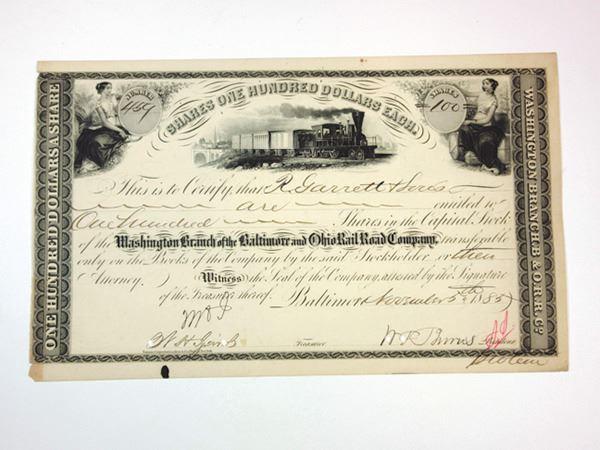 ONE HUNDRED DOLLARS A SHARE
NUMBER
SHARES ONE HUNDRED DOLLARS EACH.
SHARES
100
WASHINGTON BRANCH B & O R.R. Co.
This is to Certify, that R. Garrett & Sons
are entitled to
One hundred Shares in the Capital Stock
of the Washington Branch of the Baltimore and Ohio Rail Road Company, transferable
only on the Books of the Company by the said Stockholder or their
Attorney. Witness the Seal of the Company, attested by the Signature
of the Treasurer thereof. Baltimore November 5th 1885
Treasurer
President
pro tem